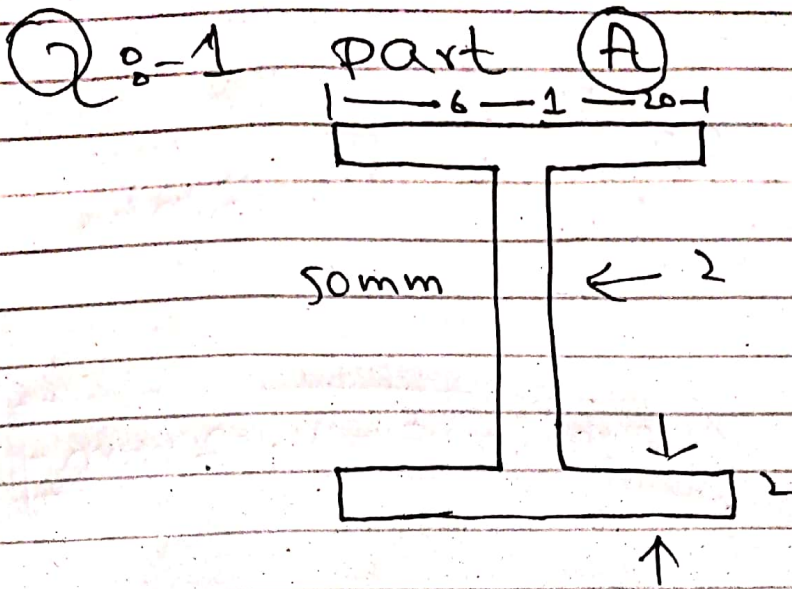 Q :- 1 part A
6 1 20
50mm
2
2